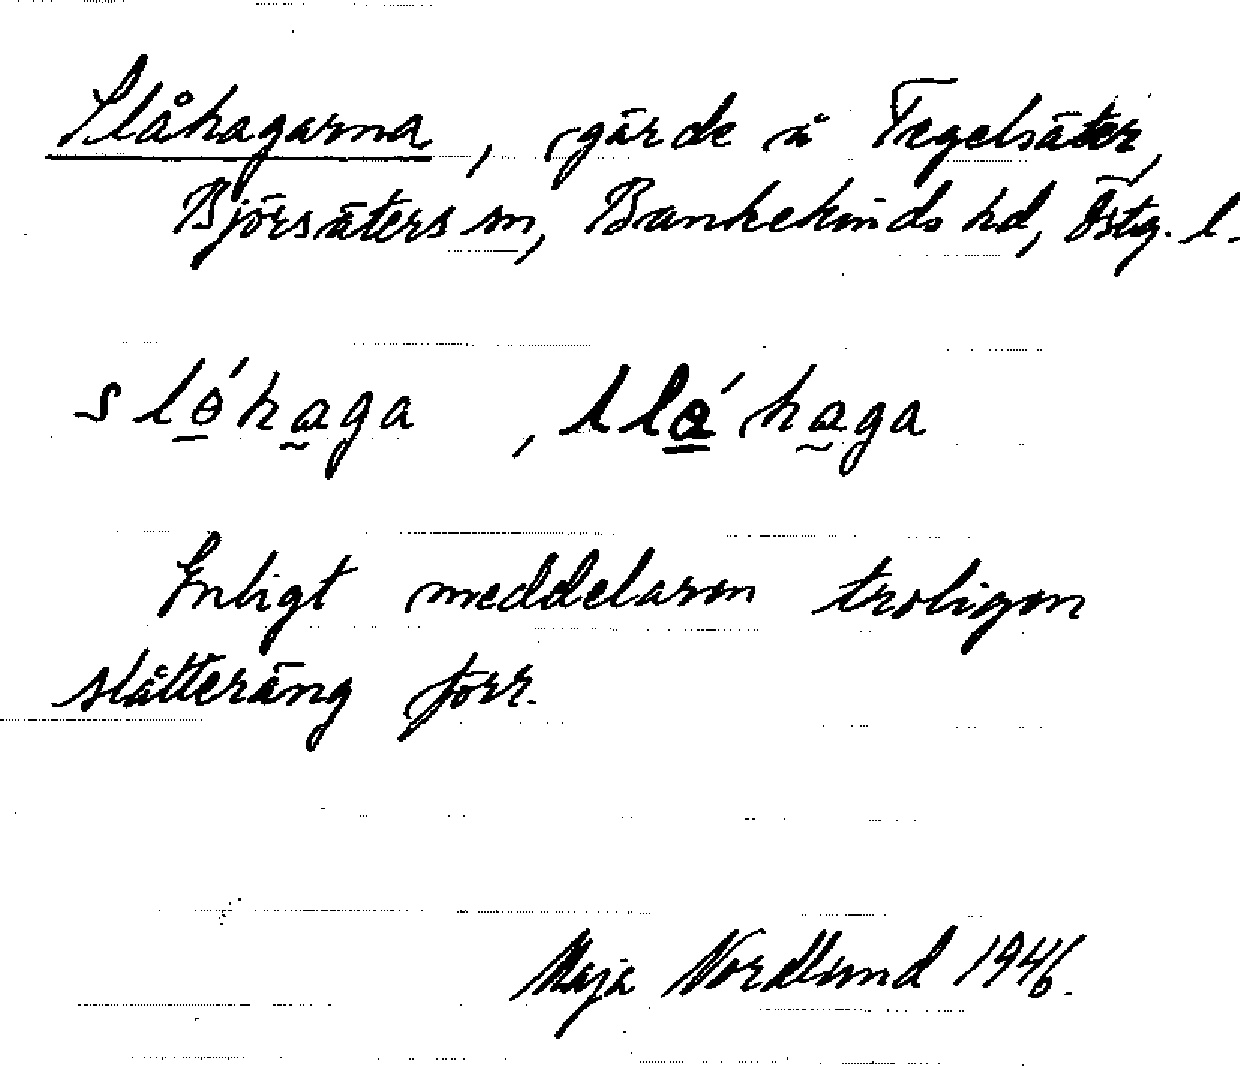 Slåhagarna, gärde å Tegelsäter,
Björsäters sn, Bankekinds hd, Östg. l.
slɵ́haga, slá̱haga
Enligt meddelaren troligen
slåtteräng förr.
Maja Nordlund 1946.